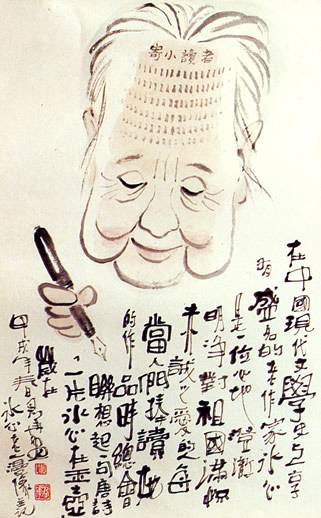 寄小讀者
在中國現代文學史上享
有盛名的老作家冰心
是一位心地澄澈
明淨對祖國滿懷
赤誠之愛的
每當人們捧讀她
的作品時總會
聯想起一句唐詩
一片冰心在玉壺
歲在
甲戌年春日
冰心老